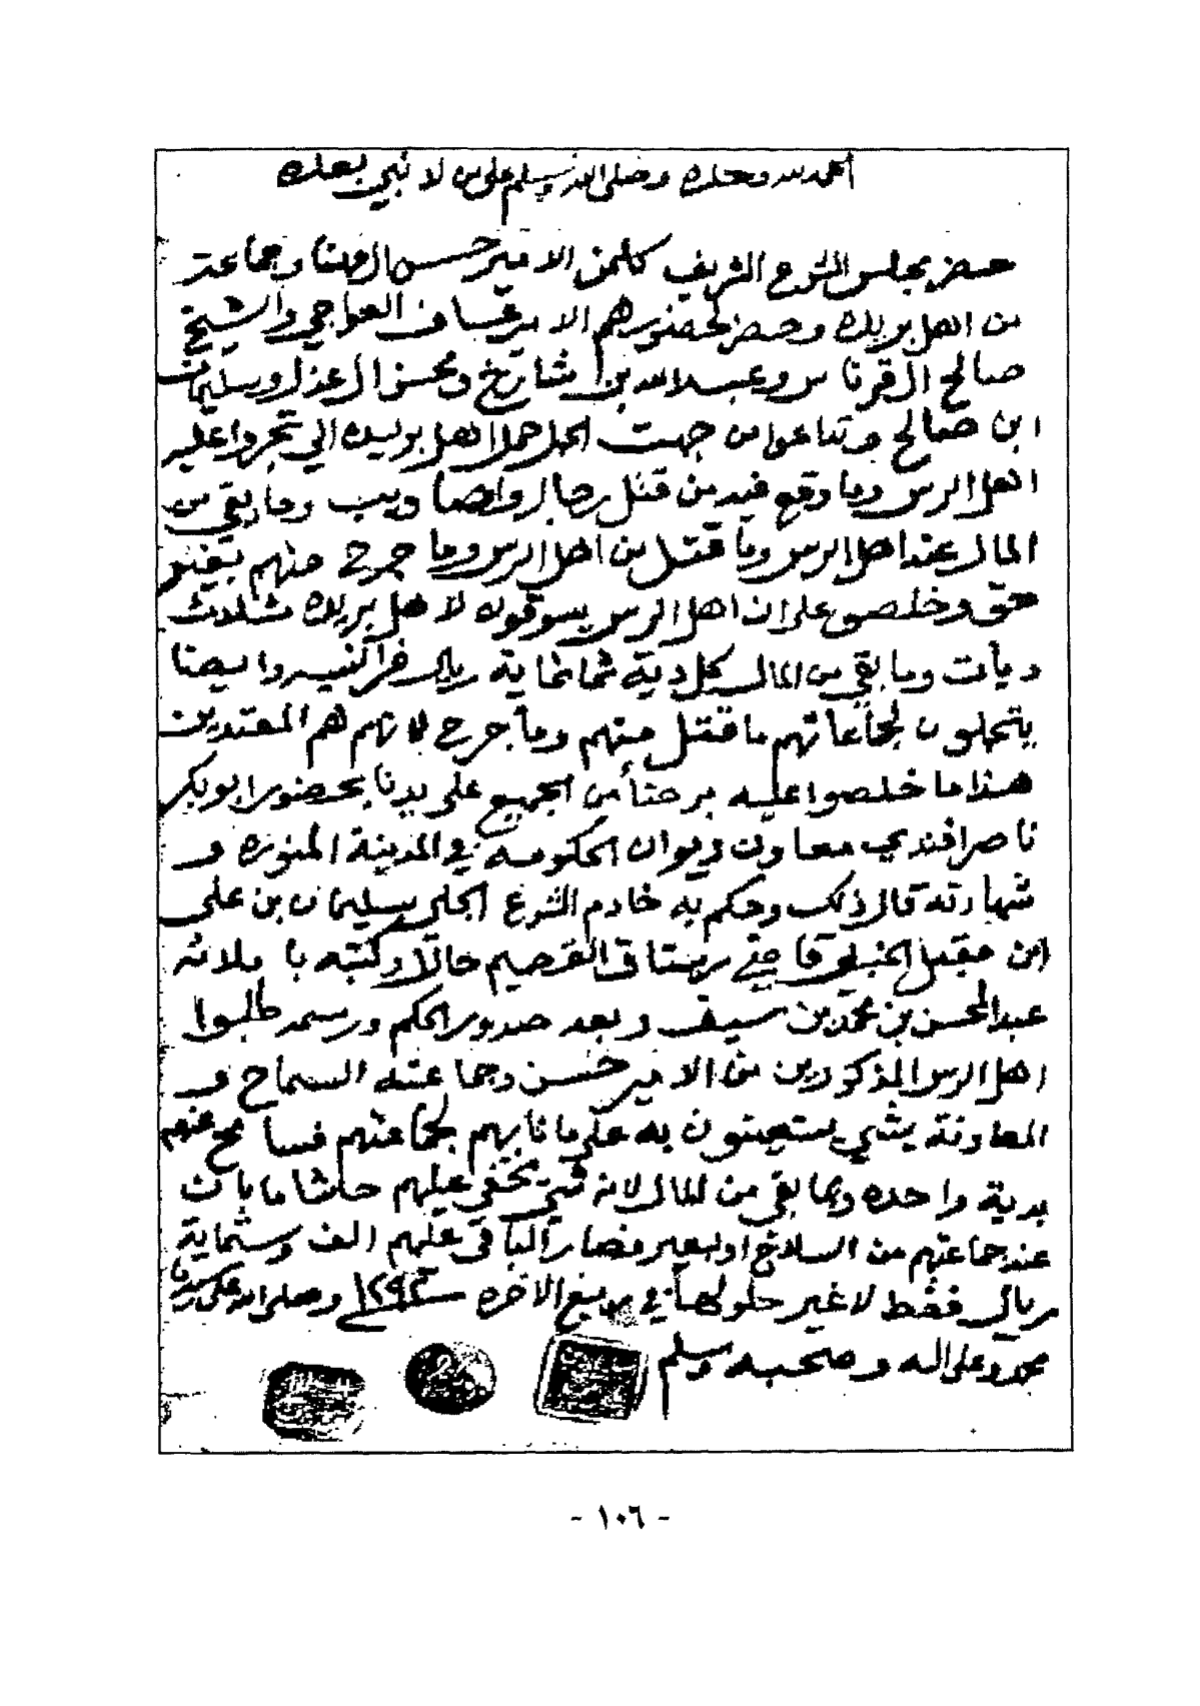 الحمد لله وحده وصلى الله وسلم على من لا نبي بعده
حضر بمجلس الشرع الشريف كلمن الامير حسن المهنا وجماعته
من اهل بريده وحضر لحضورهم الامير عساف العواجي والشيخ
صالح القرناس وعبدالله بن شارخ ومحسن العذل وسليمان
ابن صالح وتداعوا من جهت اهل بريده الي تجروا عليه
اهل الرس وما وقع فيه من قتل رجال وايضا وما بقي من
المال عند اهل الرس وما قتل من اهل الرس وما جرح منهم بغير
حق وخلصو على ان اهل الرس يسوقون لاهل بريده ثلاث
ديات وما بقي من المال كل دية ثمانماية ريال فرانسه وايضا
يتحملون لجماعاتهم ما قتل منهم وما جرح لانهم هم المعتدين
هذا ما خلصوا عليه برضاً من الجميع على يدنا بحضور ابو بكر
ناصر افندي معاون ديوان الحكومه في المدينة المنوره و
شهادته قال ذلك وحكم به خادم الشرع الجلي سليمان بن علي
ابن مقبل الحنبلي قاضي القصيم حالا وكتبه باملائه
عبدالمحسن بن محمد بن سيف وبعد صدور الحكم ورسمه طلبوا
اهل الرس المذكورين من الامير حسن وجماعته السماح و
المعاونة بشي يستعينون به على ما نابهم لجماعتهم فسامح عنهم
بدية واحده وبما بقي من المال لانه شي يخفى عليهم حاشا ما بان
عند جماعتهم من السلاح او البعير فصار الباقي عليهم الف وستماية
ريال فقط لا غير حلولها في ربيع الاخره سنة ١٢٩٣ وصلى الله على سيدنا
محمد وعلى اله وصحبه وسلم
- ١٠٦ -